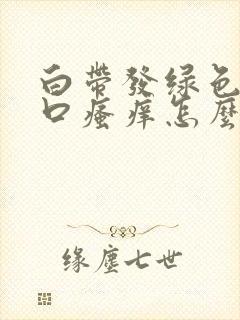 白帶發绿色
口瘙痒怎麼
缘塵七世